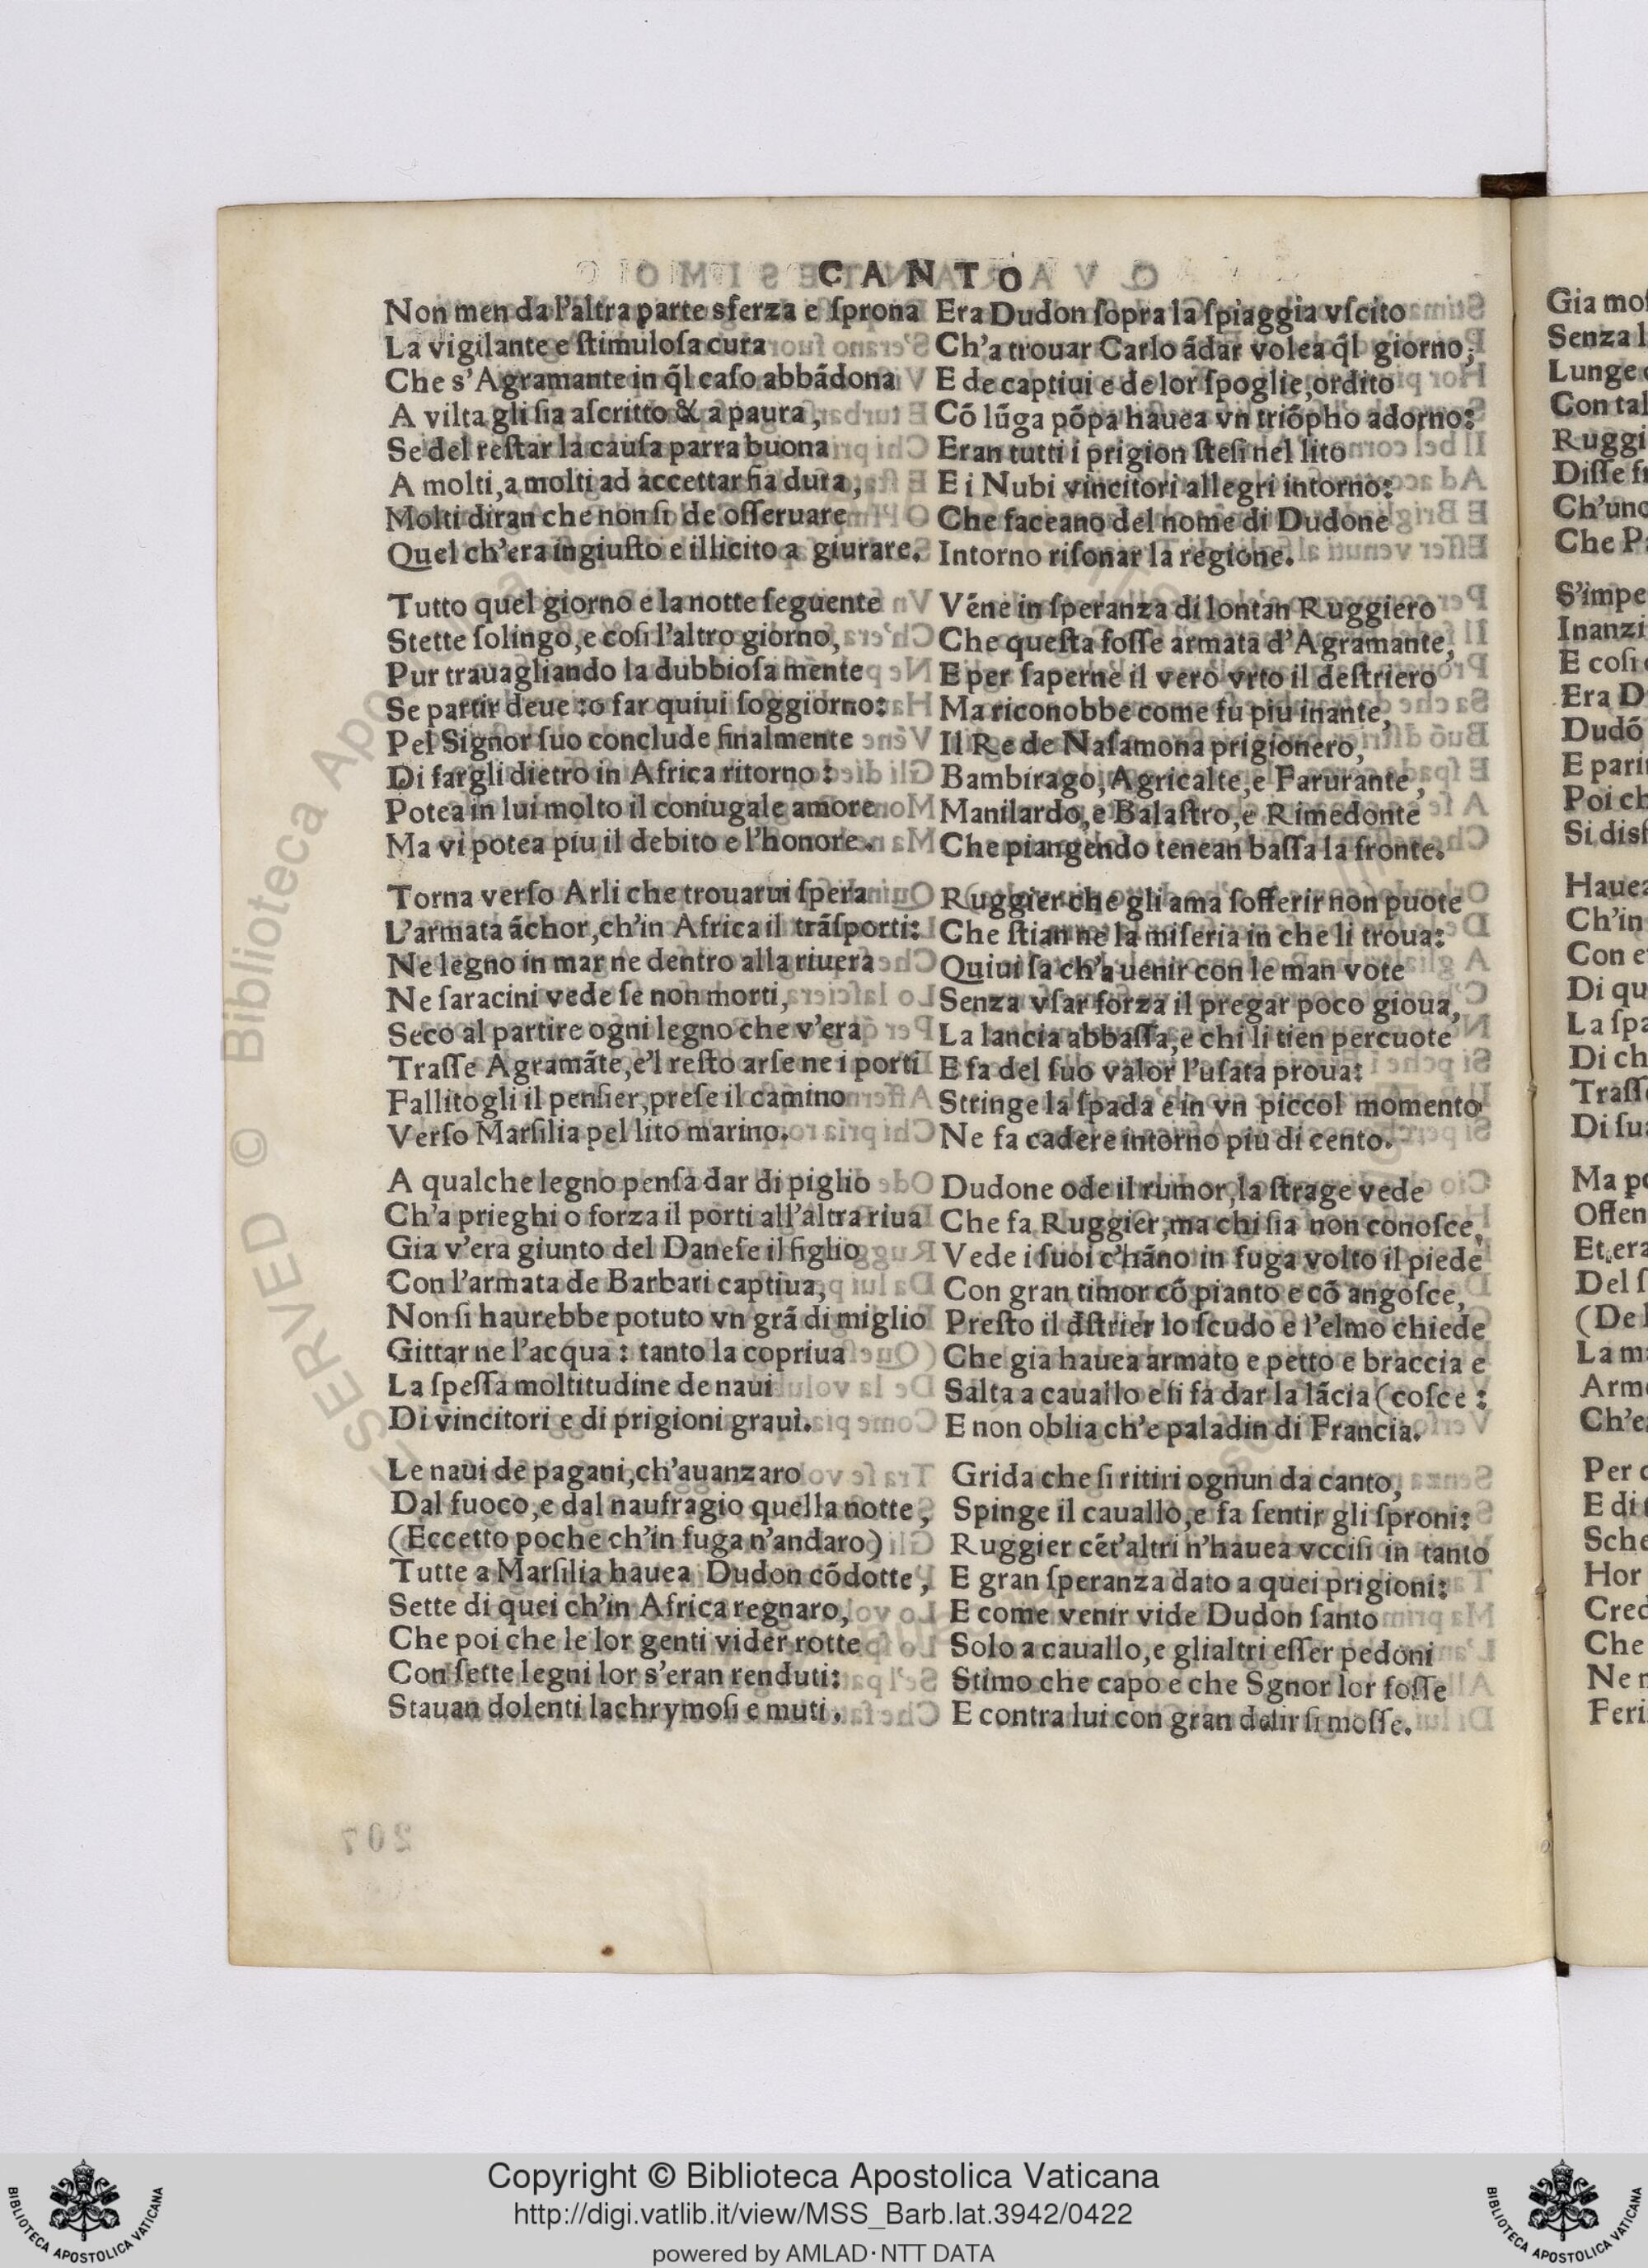 CANTO
Non men da l'altra parte sferza e ſprona
La vigilante e ſtimuloſa cura
Che s'Agramante in q̃l caſo abbãdona
A vilta gli ſia aſcritto & a paura,
Se del reſtar la cauſa parra buona
A molti, a molti ad accettar fia dura,
Molti diran che non ſi de oſſeruare
Quel ch'era ingiuſto e illicito a giurare.
Tutto quel giorno e la notte ſeguente
Stette ſolingo, e coſi l'altro giorno,
Pur trauagliando la dubbioſa mente
Se partir deue : o far quiui ſoggiorno:
Pel Signor ſuo conclude finalmente
Di fargli dietro in Africa ritorno :
Potea in lui molto il coniugale amore
Ma vi potea piu il debito e l'honore.
Torna verſo Arli che trouarui ſpera
L'armata ãchor, ch'in Africa il trãſporti:
Ne legno in mar ne dentro alla riuera
Ne ſaracini vede ſe non morti,
Seco al partire ogni legno che v'era
Traſſe Agramãte, e'l reſto arſe ne i porti
Fallitogli il penſier, preſe il camino
Verſo Marſilia pel lito marino.
A qualche legno penſa dar di piglio
Ch'a prieghi o forza il porti all'altra riua
Gia v'era giunto del Daneſe il figlio
Con l'armata de Barbari captiua,
Non ſi haurebbe potuto vn grã di miglio
Gittar ne l'acqua : tanto la copriua
La ſpeſſa moltitudine de naui
Di vincitori e di prigioni graui.
Le naui de pagani, ch'auanzaro
Dal fuoco, e dal naufragio quella notte,
(Eccetto poche ch'in fuga n'andaro)
Tutte a Marſilia hauea Dudon cõdotte,
Sette di quei ch'in Africa regnaro,
Che poi che le lor genti vider rotte
Con ſette legni lor s'eran renduti:
Stauan dolenti lachrymoſi e muti.
Era Dudon ſopra la ſpiaggia vſcito
Ch'a trouar Carlo ãdar volea q̃l giorno,
E de captiui e de lor ſpoglie, ordito
Cõ lũga põpa hauea vn triõpho adorno:
Eran tutti i prigion ſteſi nel lito
E i Nubi vincitori allegri intorno:
Che faceano del nome di Dudone
Intorno riſonar la regione.
Vẽne in ſperanza di lontan Ruggiero
Che queſta foſſe armata d'Agramante,
E per ſaperne il vero vrto il deſtriero
Ma riconobbe come fu piu inante,
Il Re de Naſamona prigionero,
Bambirago, Agricalte, e Farurante,
Manilardo, e Balaſtro, e Rimedonte
Che piangendo tenean baſſa la fronte.
Ruggier che gli ama ſofferir non puote
Che ſtian ne la miſeria in che li troua:
Quiui ſa ch'a uenir con le man vote
Senza vſar forza il pregar poco gioua,
La lancia abbaſſa, e chi li tien percuote
E fa del ſuo valor l'uſata proua:
Stringe la ſpada e in vn piccol momento
Ne fa cadere intorno piu di cento.
Dudone ode il rumor, la ſtrage vede
Che fa Ruggier, ma chi ſia non conoſce,
Vede i ſuoi c'hãno in fuga volto il piede
Con gran timor cõ pianto e cõ angoſce,
Preſto il dſtrier lo ſcudo e l'elmo chiede
Che gia hauea armato e petto e braccia e
Salta a cauallo e ſi fa dar la lãcia (coſce :
E non oblia ch'e paladin di Francia.
Grida che ſi ritiri ognun da canto,
Spinge il cauallo, e fa ſentir gli ſproni:
Ruggier cẽt'altri n'hauea vcciſi in tanto
E gran ſperanza dato a quei prigioni:
E come venir vide Dudon ſanto
Solo a cauallo, e glialtri eſſer pedoni
Stimo che capo e che Sgnor lor foſſe
E contra lui con gran deſir ſi moſſe.
207
Gia moſ
Senza l
Lunge
Con tal
Ruggi
Diſſe
Ch'uno
Che P
S'impe
Inanzi
E coſi
Era D
Dudõ
E pari
Poi ch
Si disf
Hauea
Ch'in
Con e
Di qu
La ſpa
Di ch
Traſſ
Di ſu
Ma po
Offen
Et era
Del ſ
(De
La m
Arm
Ch'e
Per
E di
Sche
Hor
Cred
Che
Ne
Feri
© Biblioteca Apo
SERVED
Copyright © Biblioteca Apostolica Vaticana
http://digi.vatlib.it/view/MSS_Barb.lat.3942/0422
powered by AMLAD·NTT DATA
BIBLIOTECA APOSTOLICA VATICANA
BIBLIOTECA APOSTOLICA VATICANA